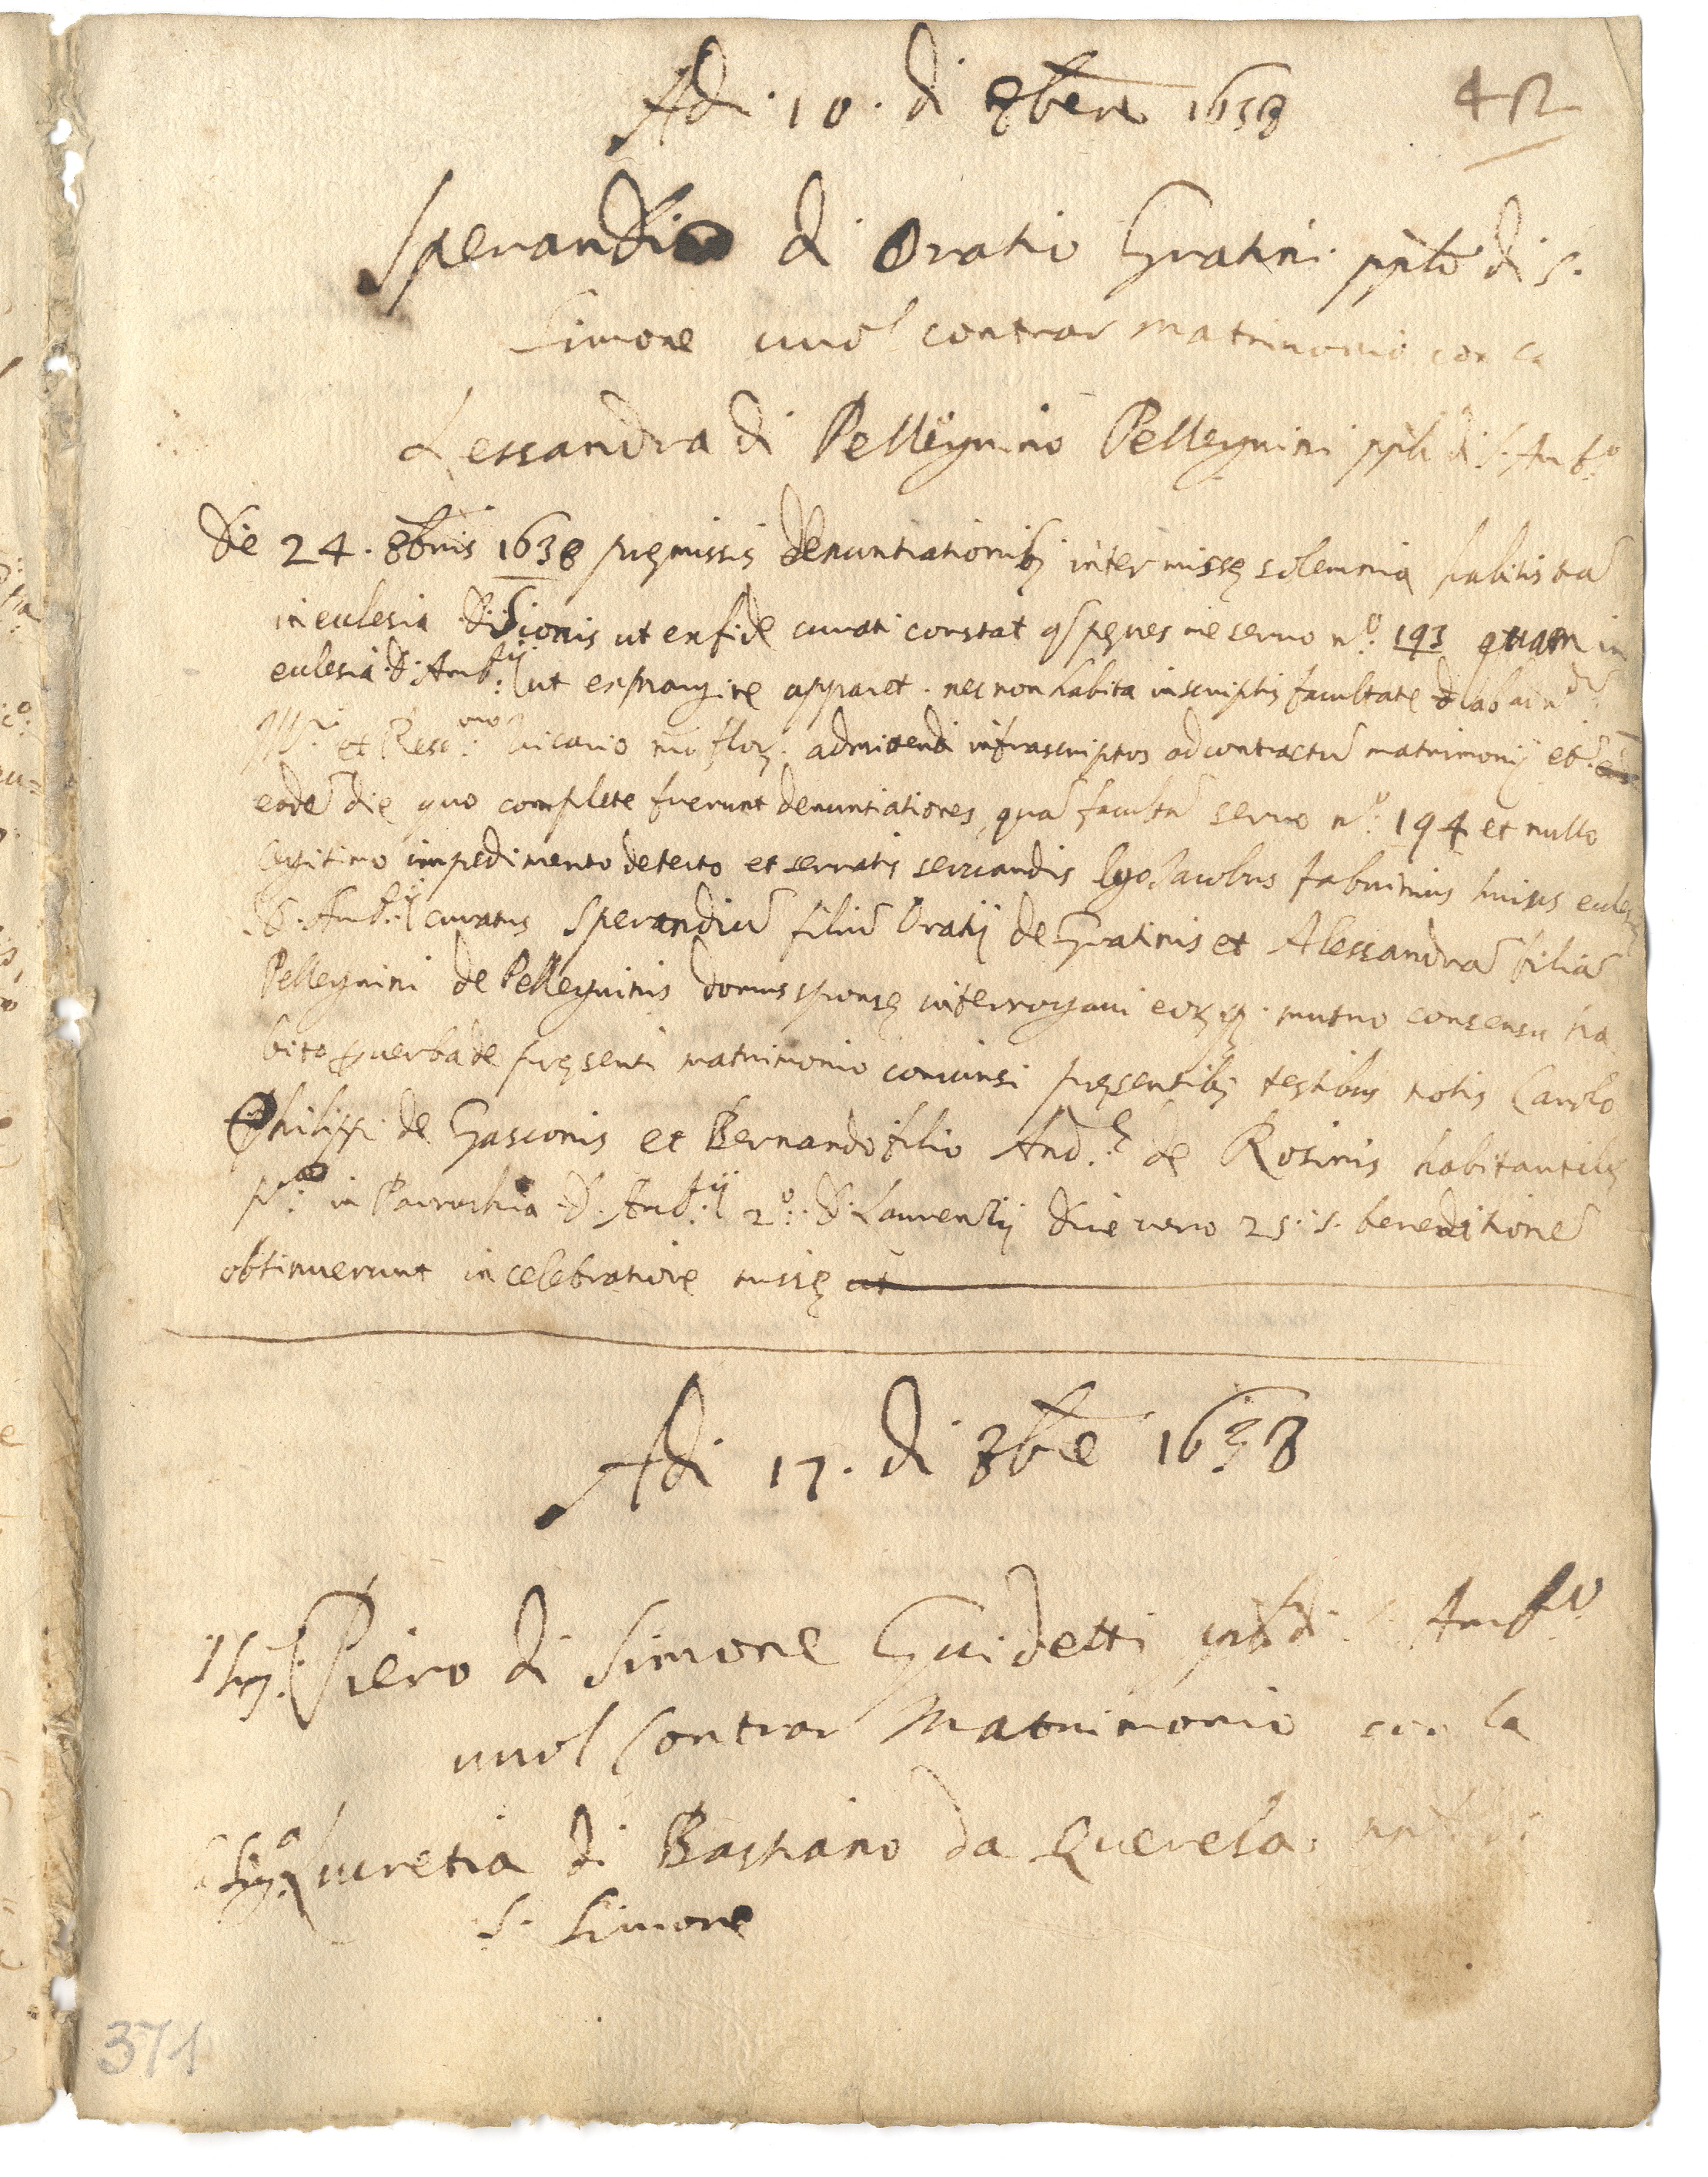 Adi · 10 · di 8bere 1638
42
Sperandio di Oratio Gratini pplo di S.
Simone vuol contrar Matrimonio con la
Lessandra di Pellegrino Pellegrini pplo di S. Amb.º
Die 24 · 8bris 1638 premissis denuntiationibus inter misse solemnia habitis tam
in eclesia S. Sionis ut ex fide curati constat penes me servo n.º 193 quam in
eclesia S. Amb.ii ut ex margine apparet · nec non habita in scriptis facultate
et Res.mo Vicario admitendi infrascriptos ad contractũ matrimonij et
eodẽ die quo complete fuerunt denuntiationes, quã facultã servo n.º 194 et nullo
legitimo impedimento detecto et servatis servandis Ego Jacobus Fabrinius huius eccles
S. Amb.ii curatus Sperandiũ filiũ Oratij de Gratinis et Alessandrã filiã
Pellegrini de Pellegrinis domus sponse interrogavi eorq. mutuo consensu ha
bito p verba de presenti matrimonio coniunsi presentibus testibus notis Carolo
Philippi de Gasconis et Bernardo filio And.e de Rosinis habitantibus
p.º in Parrochia S. Amb.ii 2.º S. Laurentij Die vero 25 · S. beneditionẽ
obtinuerunt in celebratione misse
Adi 17 · di 8bre 1638
Piero di Simone Guidetti pplo di S. Amb.º
vuol Contrar Matrimonio con la
Lucretia di Bastiano da Querela
S. Simone
371